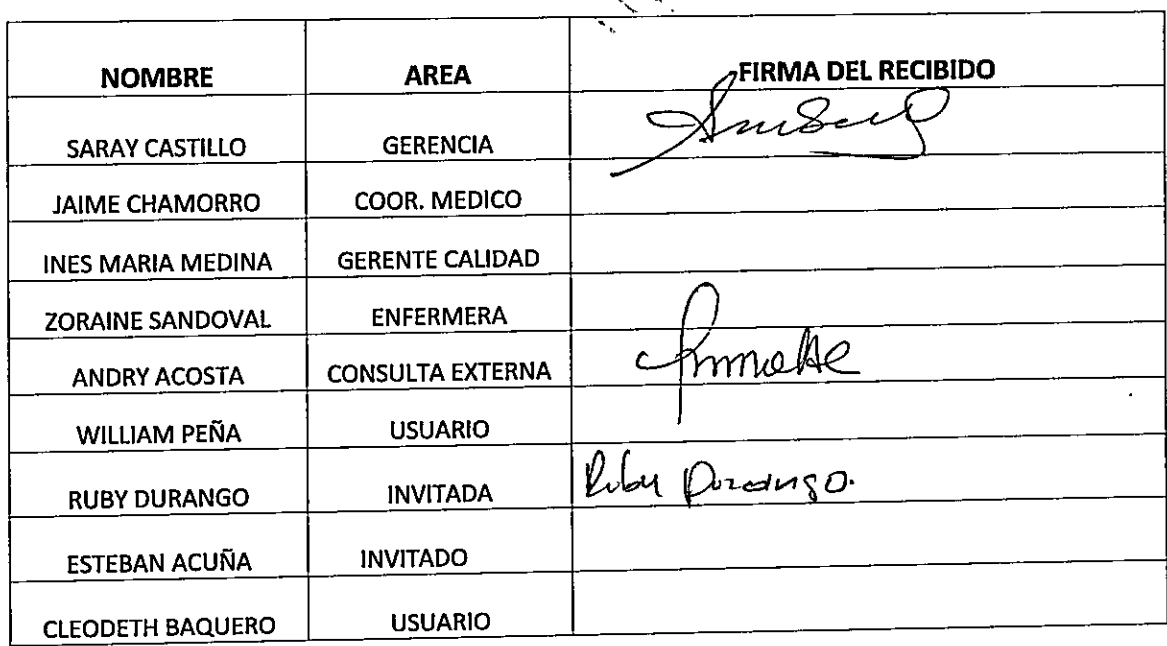 NOMBRE AREA FIRMA DEL RECIBIDO
SARAY CASTILLO GERENCIA
JAIME CHAMORRO COOR. MEDICO
INES MARIA MEDINA GERENTE CALIDAD
ZORAINE SANDOVAL ENFERMERA
ANDRY ACOSTA CONSULTA EXTERNA
WILLIAM PEÑA USUARIO
RUBY DURANGO INVITADA Ruby Durango.
ESTEBAN ACUÑA INVITADO
CLEODETH BAQUERO USUARIO